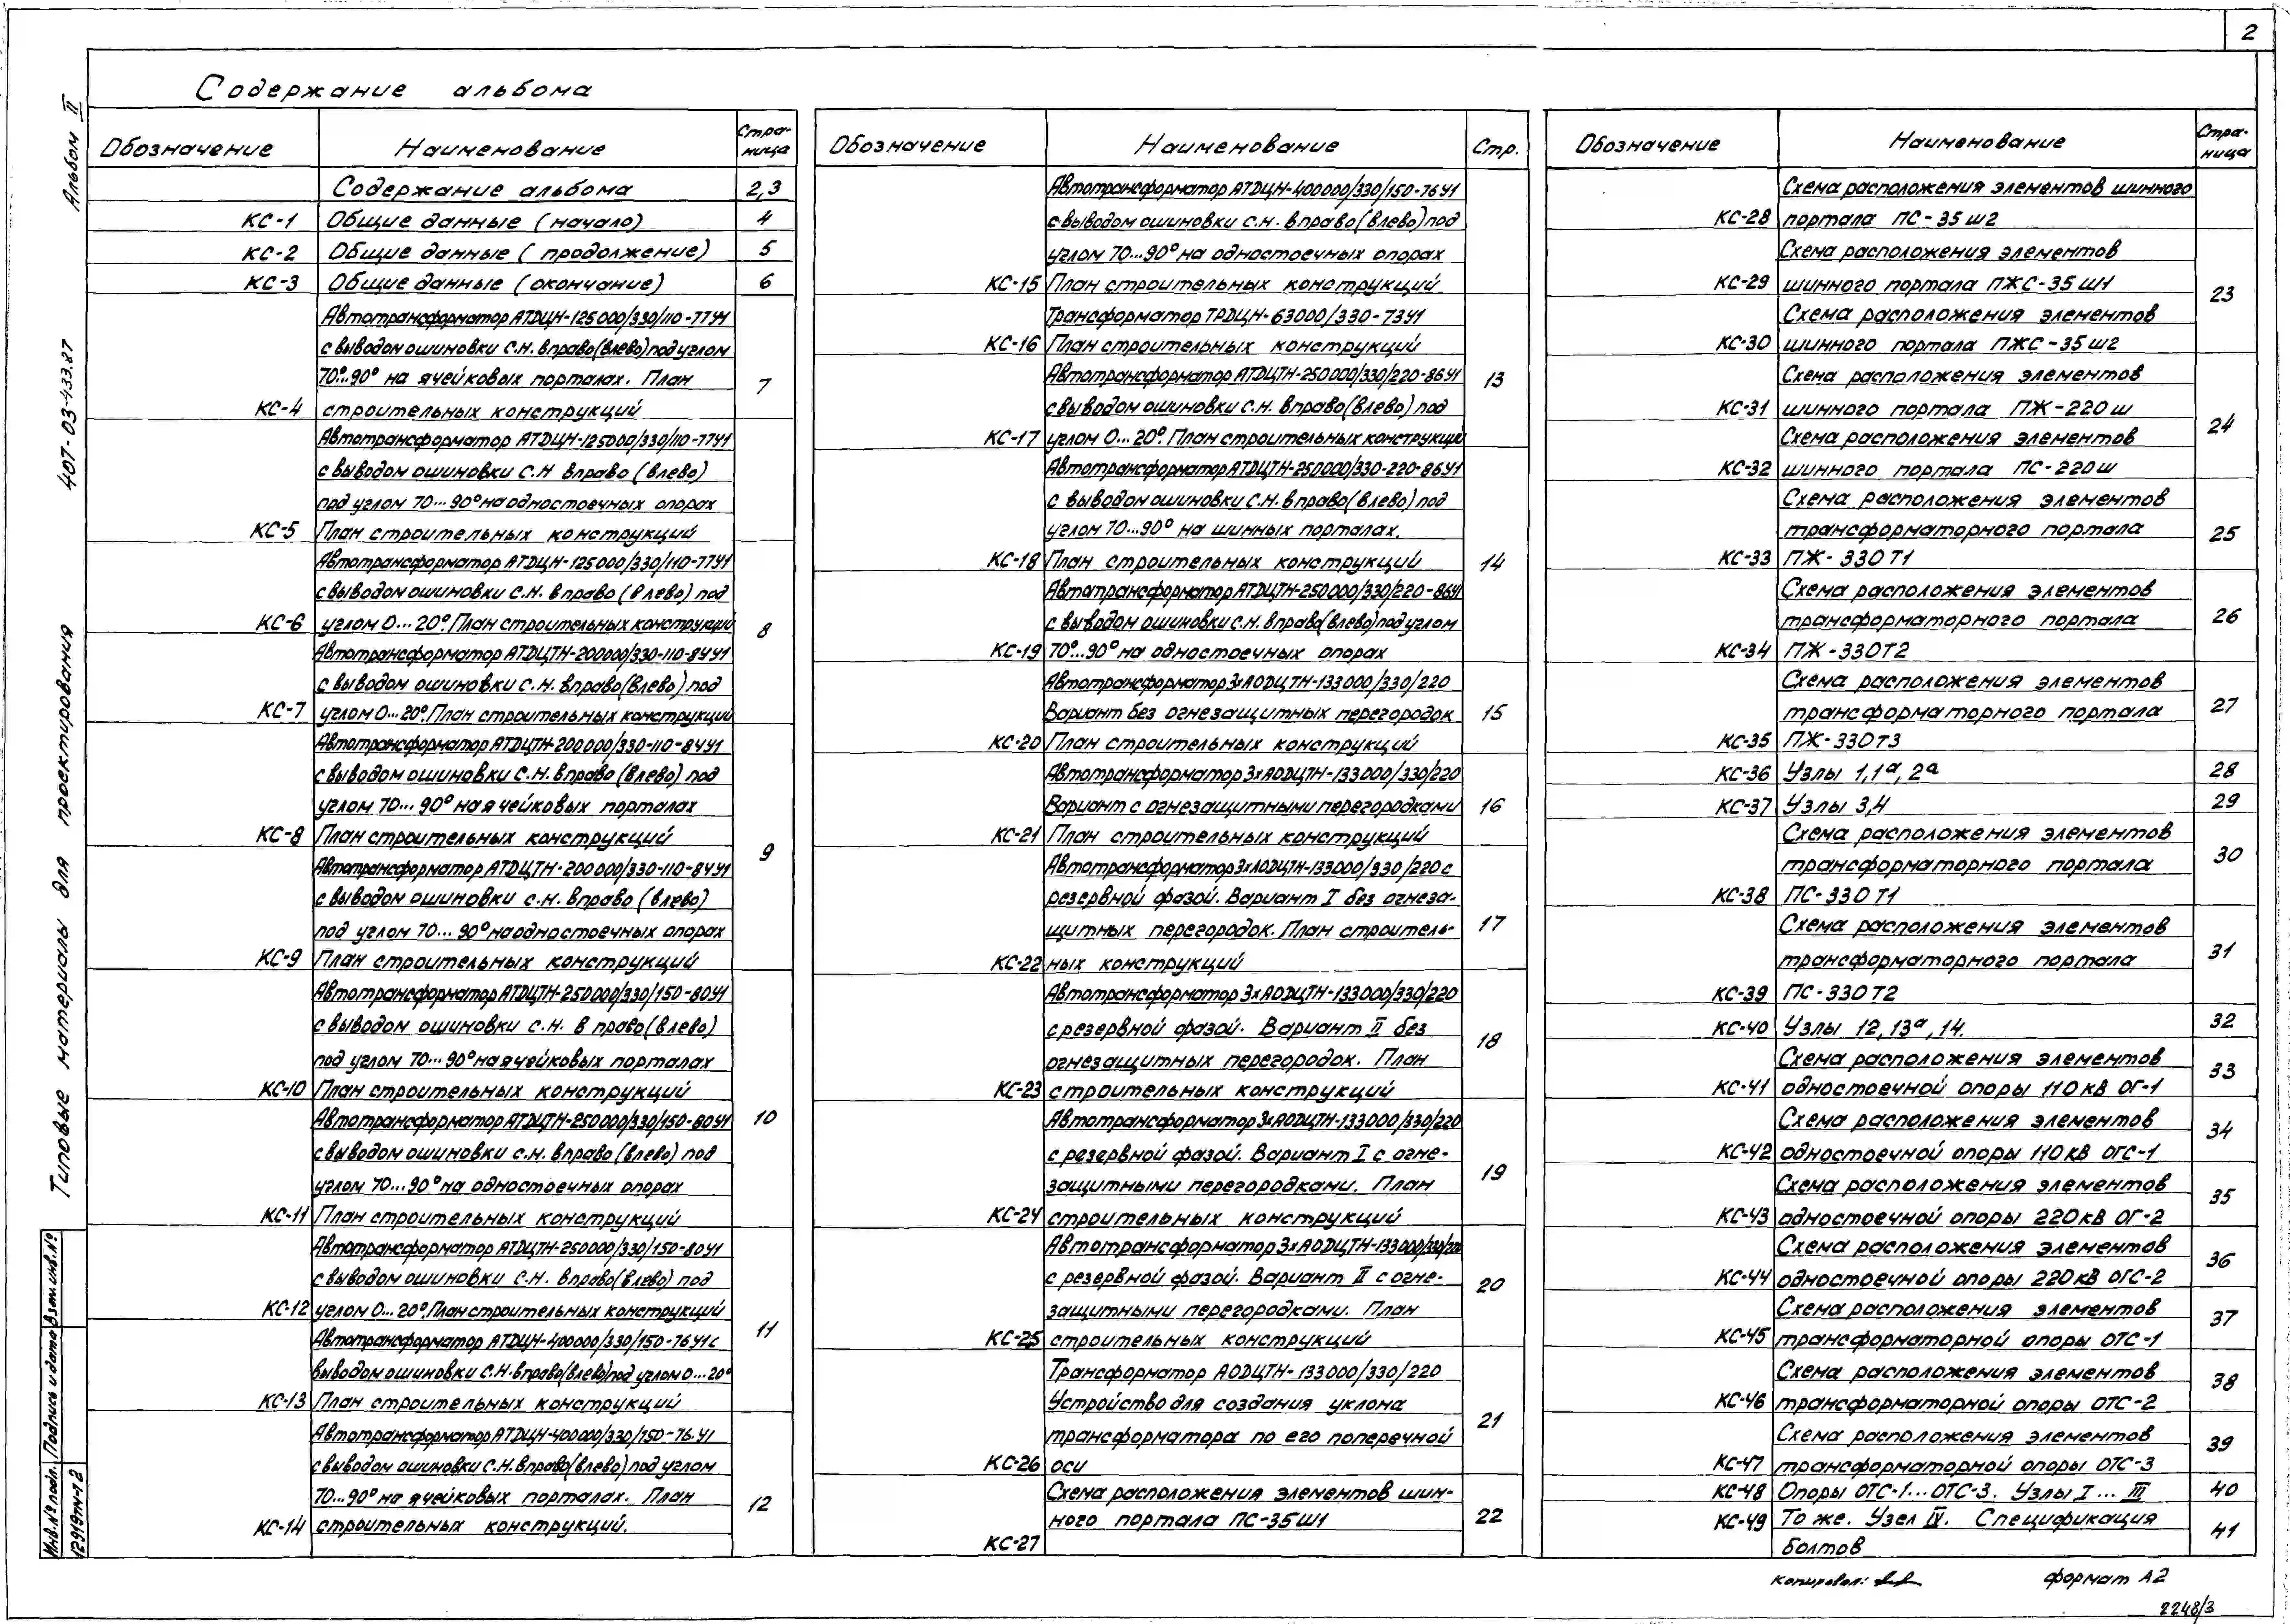 2
Содержание альбома
Альбом II
407-03-433.87
Типовые материалы для проектирования
Обозначение Наименование Стра-
ница
Содержание альбома 2,3
КС-1 Общие данные (начало) 4
КС-2 Общие данные (продолжение) 5
КС-3 Общие данные (окончание) 6
Автотрансформатор АТДЦН-125000/330/110-77У1
с выводом ошиновки С.Н. вправо (влево) под углом
70°...90° на ячейковых порталах. План 7
КС-4 строительных конструкций
Автотрансформатор АТДЦН-125000/330/110-77У1
с выводом ошиновки С.Н вправо (влево)
под углом 70...90° на одностоечных опорах
КС-5 План строительных конструкций
Автотрансформатор АТДЦН-125000/330/110-77У1
с выводом ошиновки С.Н. вправо (влево) под
КС-6 углом 0...20°. План строительных конструкций 8
Автотрансформатор АТДЦТН-200000/330-110-84У1
с выводом ошиновки С.Н. вправо (влево) под
КС-7 углом 0...20°. План строительных конструкций
Автотрансформатор АТДЦТН-200000/330-110-84У1
с выводом ошиновки С.Н. вправо (влево) под
углом 70...90° на ячейковых порталах
КС-8 План строительных конструкций 9
Автотрансформатор АТДЦТН-200000/330-110-84У1
с выводом ошиновки С.Н. вправо (влево)
под углом 70...90° на одностоечных опорах
КС-9 План строительных конструкций
Автотрансформатор АТДЦТН-250000/330/150-80У1
с выводом ошиновки С.Н. вправо (влево)
под углом 70...90° на ячейковых порталах
КС-10 План строительных конструкций
Автотрансформатор АТДЦТН-250000/330/150-80У1 10
с выводом ошиновки С.Н. вправо (влево) под
углом 70...90° на одностоечных опорах
КС-11 План строительных конструкций
Автотрансформатор АТДЦТН-250000/330/150-80У1
с выводом ошиновки С.Н. вправо (влево) под
КС-12 углом 0...20°. План строительных конструкций
Автотрансформатор АТДЦН-400000/330/150-76У1 с 11
выводом ошиновки С.Н. вправо (влево) под углом 0...20°
КС-13 План строительных конструкций
Автотрансформатор АТДЦН-400000/330/150-76.У1
с выводом ошиновки С.Н. вправо (влево) под углом
70...90° на ячейковых порталах. План 12
КС-14 строительных конструкций.
Обозначение Наименование Стр.
Автотрансформатор АТДЦН-400000/330/150-76У1
с выводом ошиновки С.Н. вправо (влево) под
углом 70...90° на одностоечных опорах
КС-15 План строительных конструкций
Трансформатор ТРДЦН-63000/330-73У1
КС-16 План строительных конструкций
Автотрансформатор АТДЦТН-250000/330/220-86У1 13
с выводом ошиновки С.Н. вправо (влево) под
КС-17 углом 0...20°. План строительных конструкций
Автотрансформатор АТДЦТН-250000/330-220-86У1
с выводом ошиновки С.Н. вправо (влево) под
углом 70...90° на шинных порталах.
КС-18 План строительных конструкций 14
Автотрансформатор АТДЦТН-250000/330/220-86У1
с выводом ошиновки С.Н. вправо (влево) под углом
КС-19 70°...90° на одностоечных опорах
Автотрансформатор 3хАОДЦТН-133000/330/220
Вариант без огнезащитных перегородок 15
КС-20 План строительных конструкций
Автотрансформатор 3хАОДЦТН-133000/330/220
Вариант с огнезащитными перегородками 16
КС-21 План строительных конструкций
Автотрансформатор 3хАОДЦТН-133000/330/220 с
резервной фазой. Вариант I без огнеза-
щитных перегородок. План строитель- 17
КС-22 ных конструкций
Автотрансформатор 3хАОДЦТН-133000/330/220
с резервной фазой. Вариант II без 18
огнезащитных перегородок. План
КС-23 строительных конструкций
Автотрансформатор 3хАОДЦТН-133000/330/220
с резервной фазой. Вариант I с огне- 19
защитными перегородками. План
КС-24 строительных конструкций
Автотрансформатор 3хАОДЦТН-133000/330/220
с резервной фазой. Вариант II с огне- 20
защитными перегородками. План
КС-25 строительных конструкций
Трансформатор АОДЦТН-133000/330/220
Устройство для создания уклона
трансформатора по его поперечной 21
КС-26 оси
Схема расположения элементов шин-
ного портала ПС-35Ш1 22
КС-27
Обозначение Наименование Стра-
ница
Схема расположения элементов шинного
КС-28 портала ПС-35Ш2
Схема расположения элементов
КС-29 шинного портала ПЖС-35Ш1 23
Схема расположения элементов
КС-30 шинного портала ПЖС-35Ш2
Схема расположения элементов
КС-31 шинного портала ПЖ-220Ш 24
Схема расположения элементов
КС-32 шинного портала ПС-220Ш
Схема расположения элементов
трансформаторного портала 25
КС-33 ПЖ-330Т1
Схема расположения элементов
трансформаторного портала 26
КС-34 ПЖ-330Т2
Схема расположения элементов
трансформаторного портала 27
КС-35 ПЖ-330Т3
КС-36 Узлы 1,1а, 2а 28
КС-37 Узлы 3,4 29
Схема расположения элементов
трансформаторного портала 30
КС-38 ПС-330Т1
Схема расположения элементов
трансформаторного портала 31
КС-39 ПС-330Т2
КС-40 Узлы 12, 13а, 14. 32
Схема расположения элементов
КС-41 одностоечной опоры 110кВ ОГ-1 33
Схема расположения элементов
КС-42 одностоечной опоры 110кВ ОГС-1 34
Схема расположения элементов
КС-43 одностоечной опоры 220кВ ОГ-2 35
Схема расположения элементов
КС-44 одностоечной опоры 220кВ ОГС-2 36
Схема расположения элементов
КС-45 трансформаторной опоры ОТС-1 37
Схема расположения элементов
КС-46 трансформаторной опоры ОТС-2 38
Схема расположения элементов
КС-47 трансформаторной опоры ОТС-3 39
КС-48 Опоры ОТС-1...ОТС-3. Узлы I...III 40
КС-49 То же. Узел IV. Спецификация
болтов 41
Инв.№ подл. Подпись и дата Взам.инв.№
12919тм-т2
Копировал: формат А2
2248/3